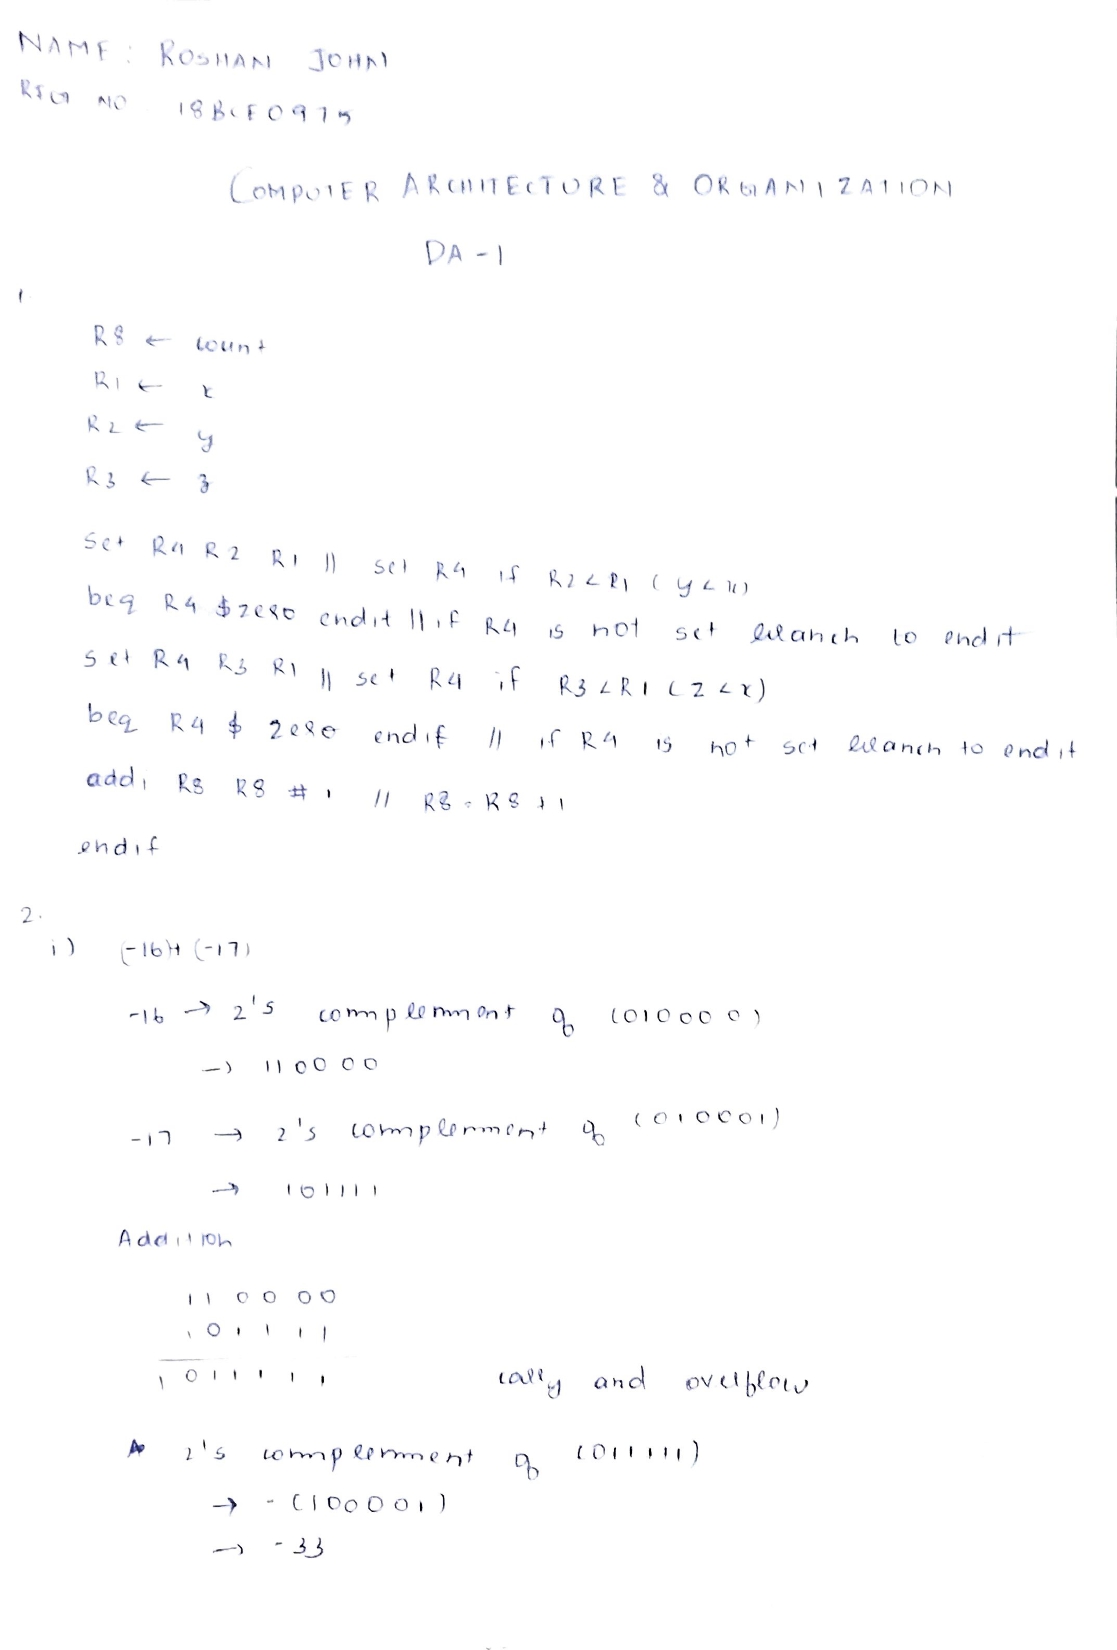 NAME: ROSHAN JOHN
REG NO 18BCE0975
COMPUTER ARCHITECTURE & ORGANIZATION
DA-1
1.
R8 ← count
R1 ← x
R2 ← y
R3 ← z
set R4 R2 R1 || set R4 if R2<R1 (y<x)
beq R4 $zero endif || if R4 is not set branch to endif
set R4 R3 R1 || set R4 if R3<R1 (z<x)
beq R4 $zero endif || if R4 is not set branch to endif
addi R8 R8 #1 // R8=R8+1
endif
2.
i) (-16)+(-17)
-16 → 2's complemment of (010000)
→ 110000
-17 → 2's complemment of (010001)
→ 101111
Addition
110000
101111
1011111 carry and overflow
2's complemment of (011111)
→ -(100001)
→ -33